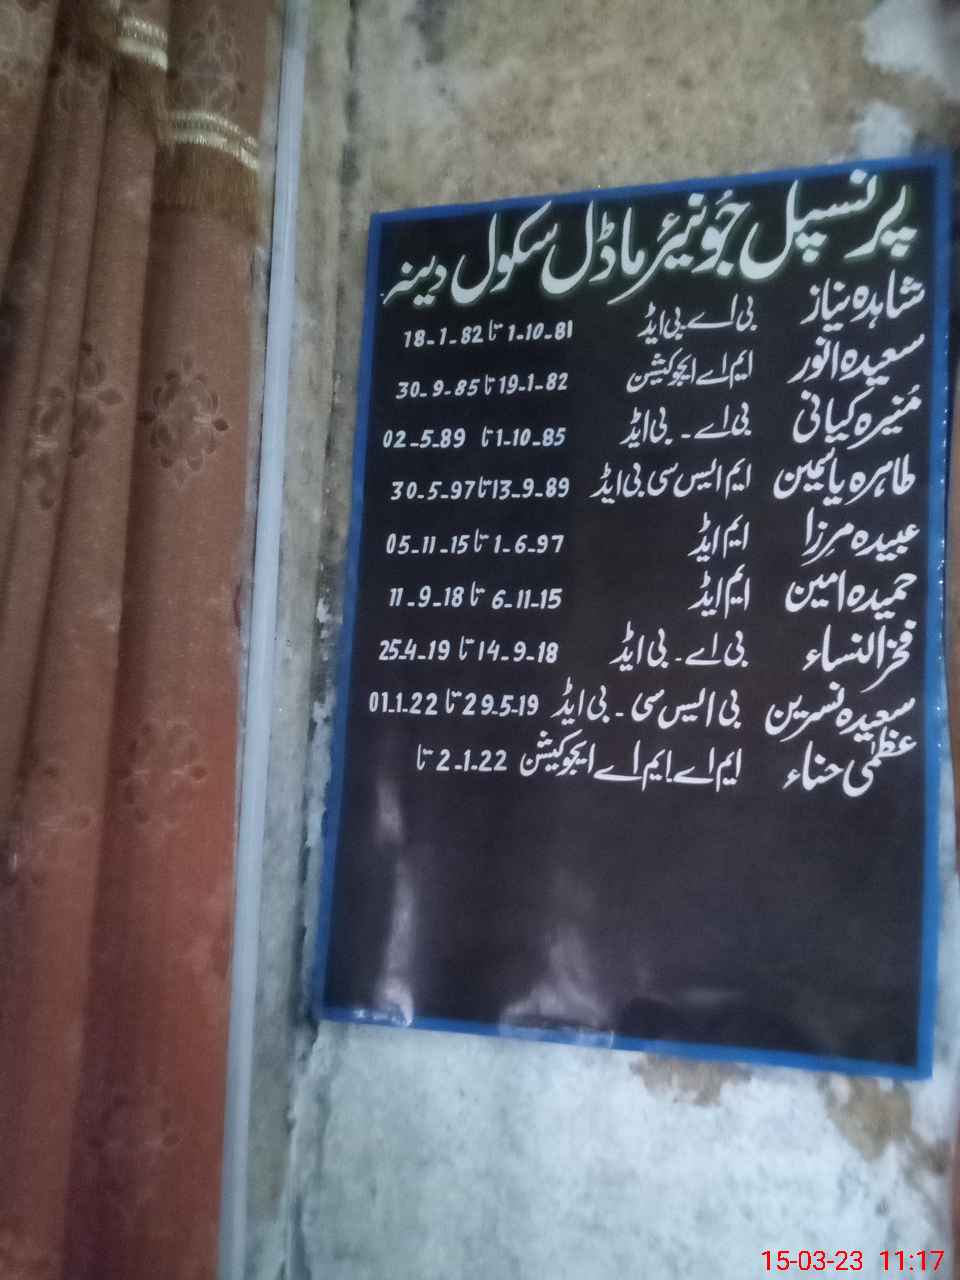 پرنسپل جُونیئر ماڈل سکول دینہ
شاہدہ نیاز بی اے۔ بی ایڈ 1-10-81 تا 18-1-82
سعیدہ انور ایم اے ایجوکیشن 19-1-82 تا 30-9-85
مُنیرہ کیانی بی اے۔ بی ایڈ 1-10-85 تا 02-5-89
طاہرہ یاسمین ایم ایس سی بی ایڈ 13-9-89 تا 30-5-97
عبیدہ مرزا ایم ایڈ 1-6-97 تا 05-11-15
حمیدہ امین ایم ایڈ 6-11-15 تا 11-9-18
فخرالنساء بی اے۔ بی ایڈ 14-9-18 تا 25-4-19
سعیدہ نسرین بی ایس سی ۔ بی ایڈ 29-5-19 تا 01-1-22
عظمٰی حناء ایم اے۔ ایم اے ایجوکیشن 2-1-22 تا
15-03-23 11:17